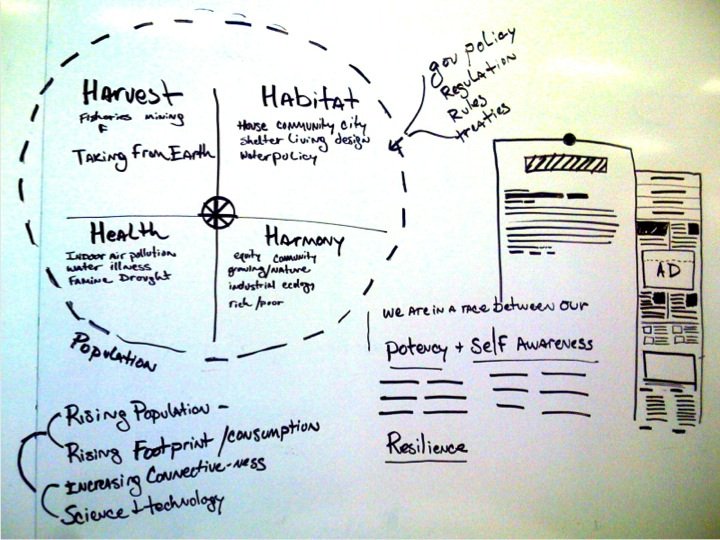 Harvest
Fisheries mining
F
Taking from Earth
Habitat
House community city
shelter living design
water policy
gov policy
Regulation
Rules
treaties
Health
Indoor air pollution
water illness
Famine Drought
Harmony
equity community
growing/nature
industrial ecology
rich/poor
Population
AD
We are in a race between our
potency + Self Awareness
Resilience
Rising Population –
Rising Footprint/consumption
Increasing Connective-ness
Science + technology